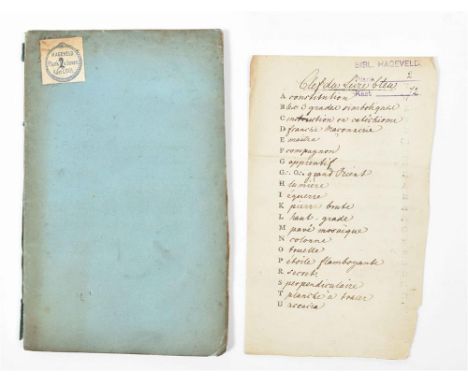 HAGEVELD
2
BIBL. HAGEVELD.
2
Kast 72
Clef du Livre bleu
A constitution
B les 3 grades simboliques
C instruction ou catéchisme
D franche maçonnerie
E maitre
F compagnon
G apprentif
G∴O∴ grand Orient
H lumiere
I equerre
K pierre brute
L haut-grade
M pavé mosaïque
N colonne
O houelle
P étoile flamboyante
R secret
S perpendiculaire
T planche à tracer
U accacia